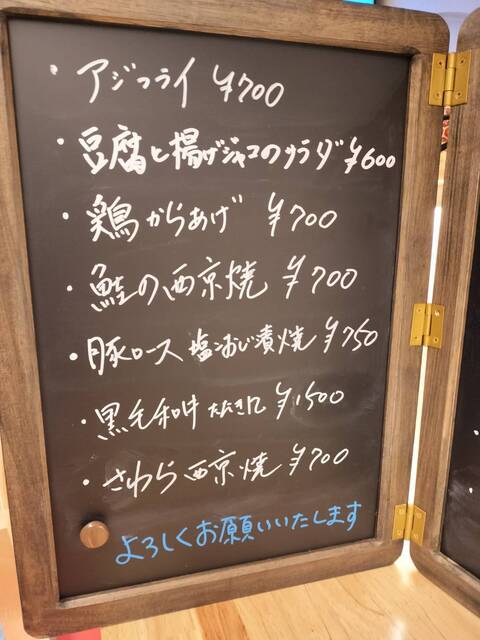 ・アジフライ ¥700
・豆腐と揚げジャコのサラダ ¥600
・鶏からあげ ¥700
・鮭の西京焼 ¥700
・豚ロース 塩こおじ漬焼 ¥750
・黒毛和牛 たたき ¥1500
・さわら西京焼 ¥700
よろしくお願いいたします